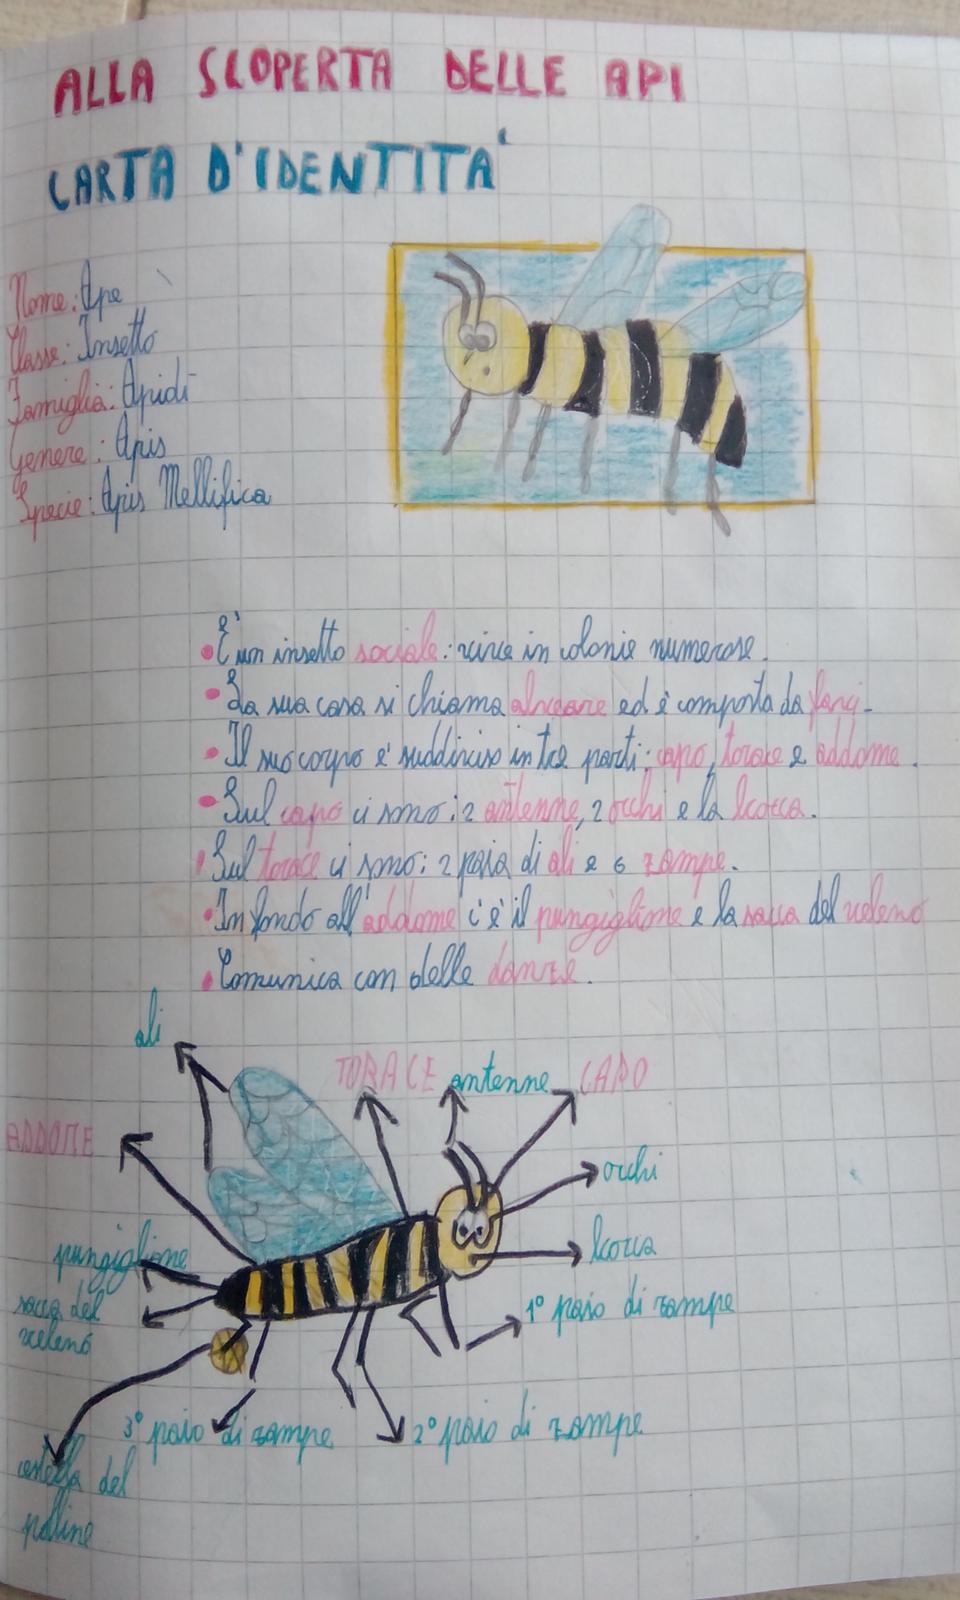 ALLA SCOPERTA DELLE API
CARTA D'IDENTITA'
Nome: Ape
Classe: Insetto
Famiglia: Apidi
Genere: Apis
Specie: Apis Mellifica
• E' un insetto sociale: vive in colonie numerose.
• La sua casa si chiama alveare ed è composta da favi.
• Il suo corpo e' suddiviso in tre parti: capo, torace e addome.
• Sul capo ci sono: 2 antenne, 2 occhi e la bocca.
• Sul torace ci sono: 2 paia di ali e 6 zampe.
• In fondo all'addome c'è il pungiglione e la sacca del veleno
• Comunica con delle danze.
ali
TORACE antenne CAPO
ADDOME
occhi
pungiglione
bocca
sacca del
veleno
1° paio di zampe
3° paio di zampe
2° paio di zampe
cestella del
polline